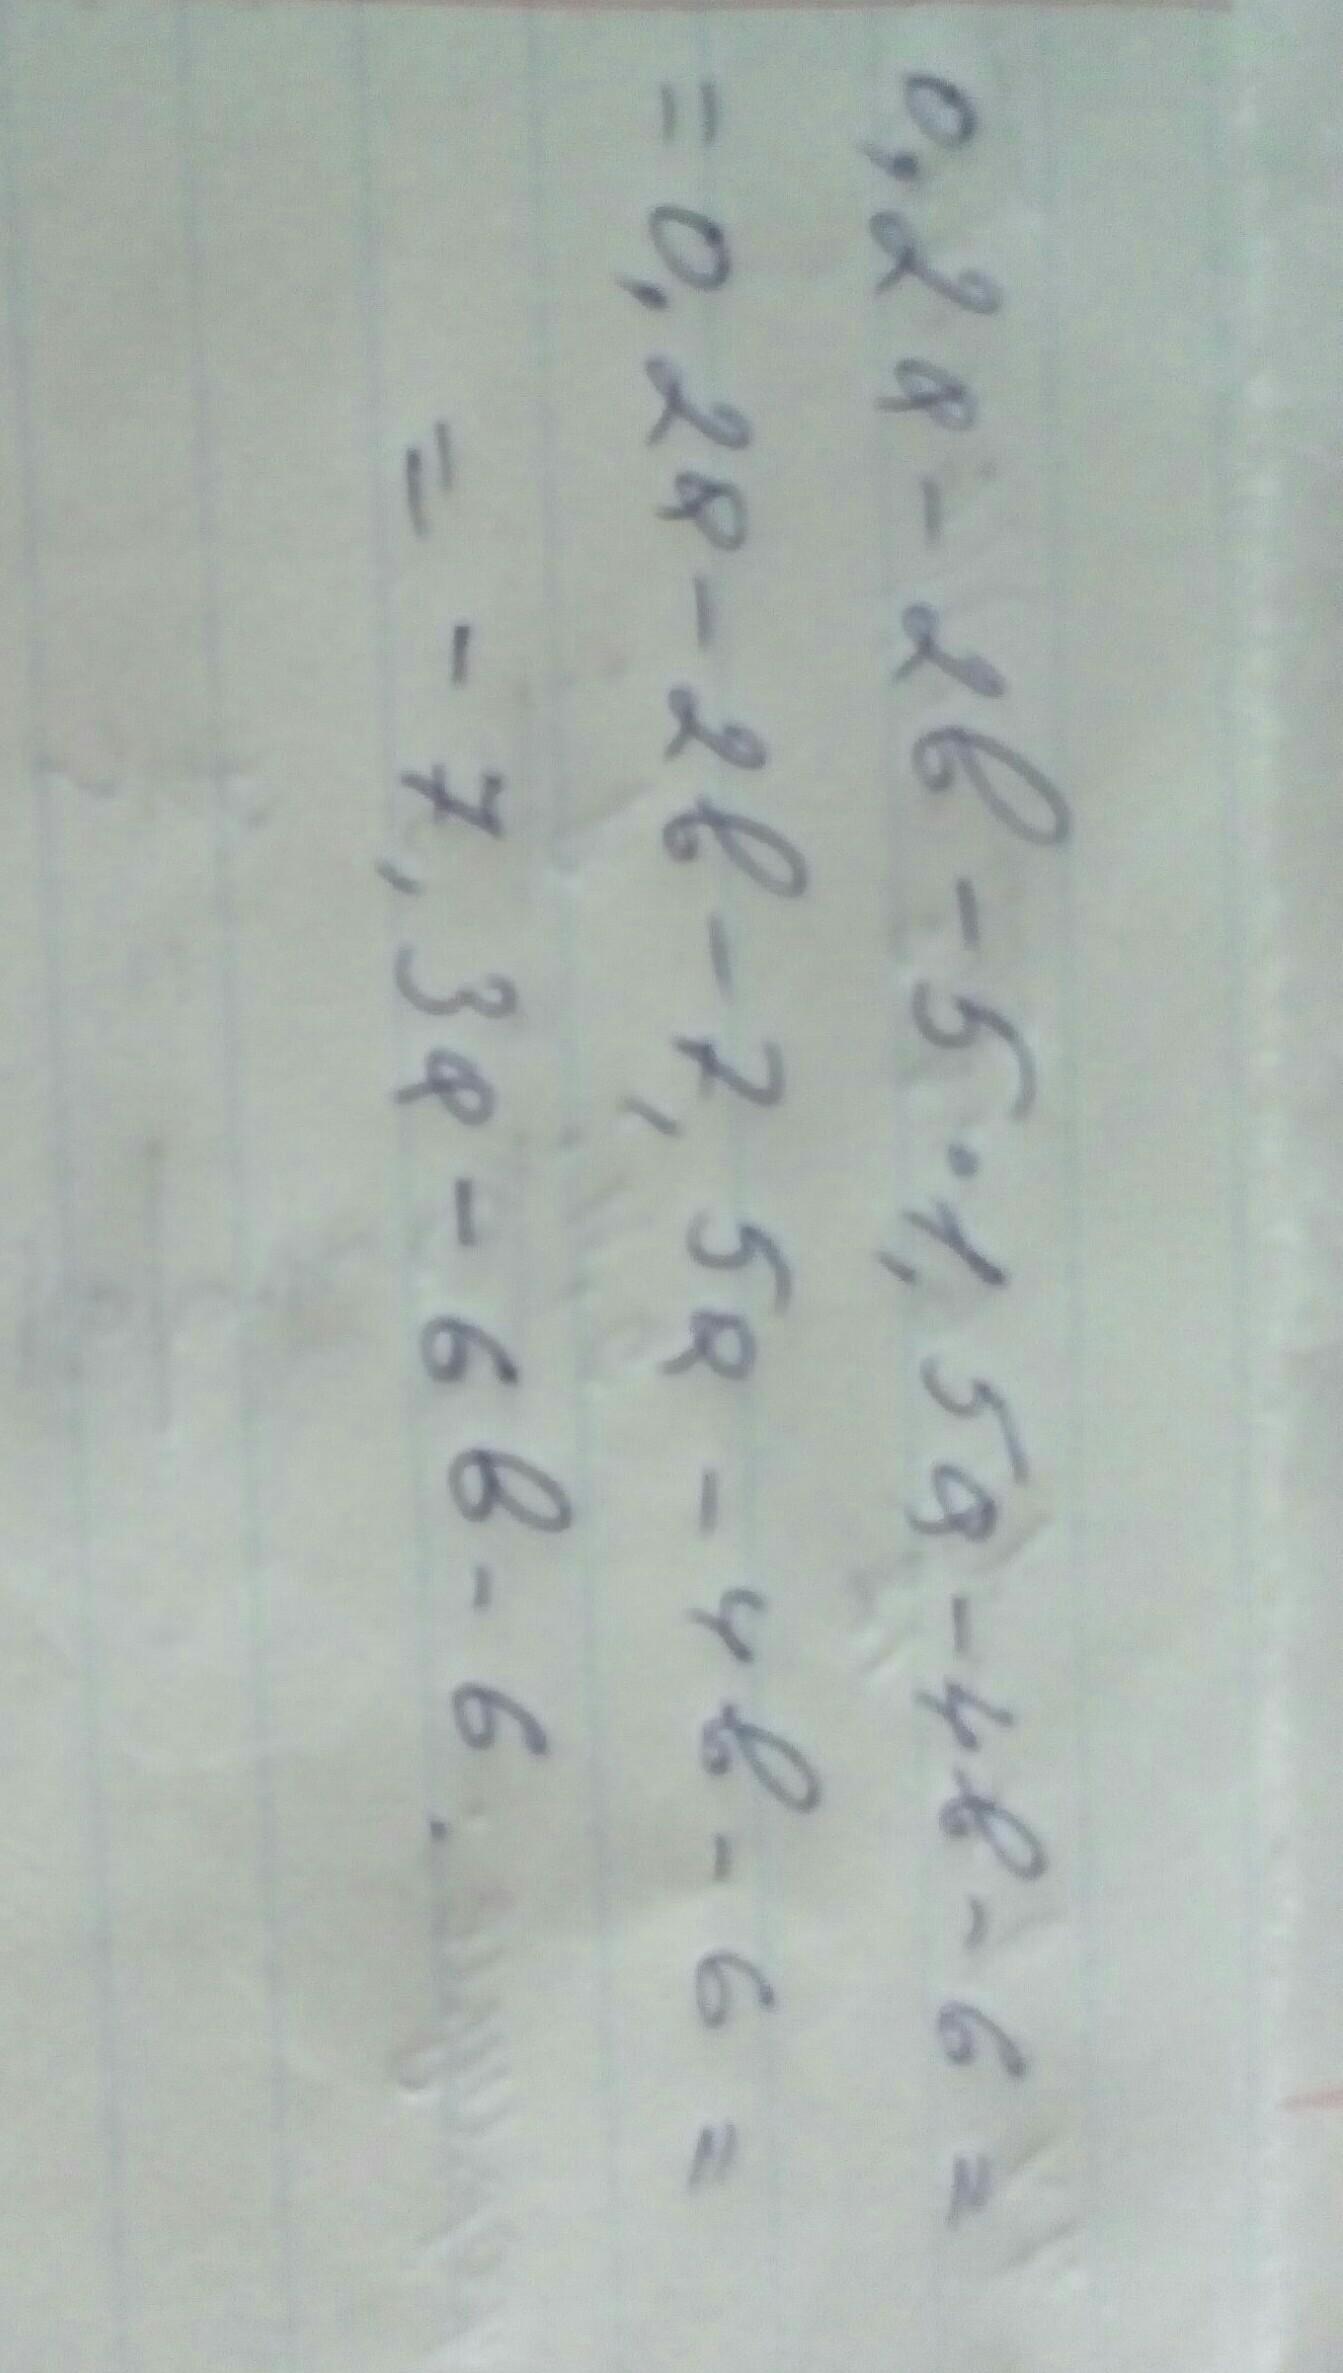 0,2a - 2b - 5 · 1,5a - 4b - 6 =
= 0,2a - 2b - 7,5a - 4b - 6 =
= - 7,3a - 6b - 6.